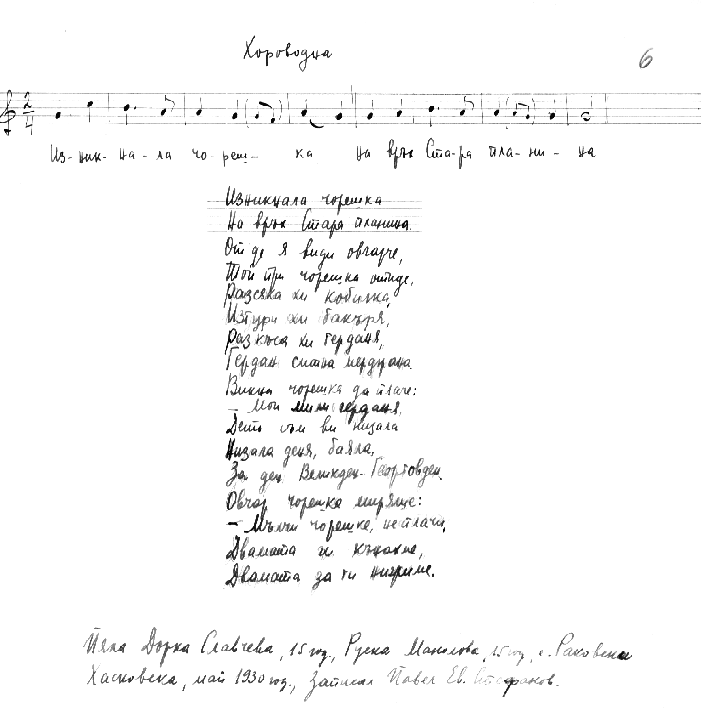 Хороводна
6
Из-ник-на-ла чо-реш-ка на врък Ста-ра пла-ни-на
Изникнала чорешка
На врък Стара планина.
От де я види овчарче,
Той при чорешка отиде,
Разсяка хи кобилка,
Изтури хи бакъря,
Разкъса хи герданя,
Гердан ситна мерджана.
Викна чорешка да плаче:
– Мои мили герданя,
Дето съм ви низала
Низала деня, баяла,
За ден Великден-Георговден.
Овчар чорешка миряше:
– Мълчи чорешке, не плачи,
Двамата ги
Двамата за ги
Пяла Дорка Славчева, 15 год., Руска Манолова, 15 год., с. Раковски
Хасковска, май 1930 год., Записал Павел Ев. Стефанов.